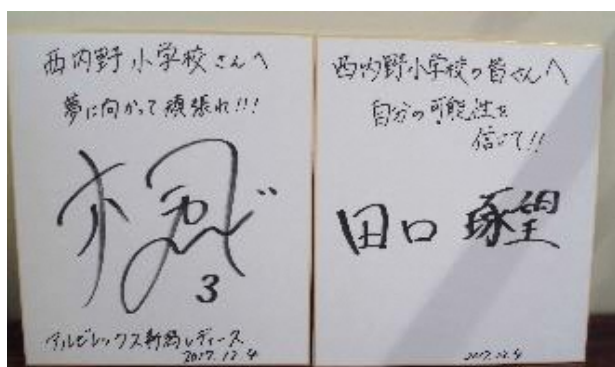 西内野小学校さんへ
夢に向かって頑張れ!!!
3
アルビレックス新潟レディース
2017.12.4
西内野小学校の皆さんへ
自分の可能性を
信じて!!
田口 琢望
2017.12.4